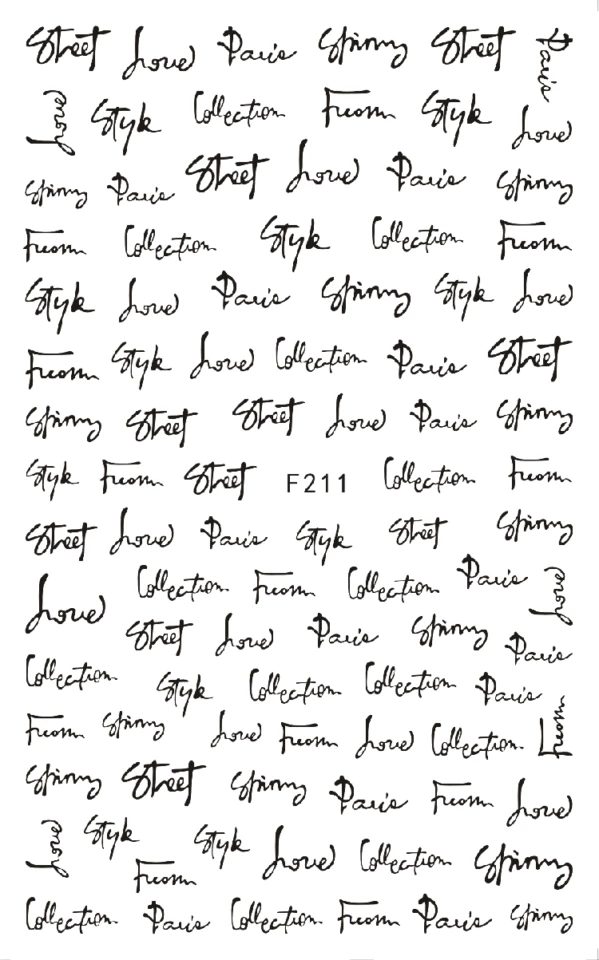 Street Love Paris Spinny Street Paris
Love Style Collection Fromm Style Love
Spinny Paris Street Love Paris Spinny
Fromm Collection Style Collection Fromm
Style Love Paris Spinny Style Love
Fromm Style Love Collection Paris Street
Spinny Street Street Love Paris Spinny
Style Fromm Street F211 Collection Fromm
Street Love Paris Style Street Spinny
Love Collection Fromm Collection Paris Love
Street Love Paris Spinny Paris
Collection Style Collection Collection Paris
Fromm Spinny Love Fromm Love Collection Fromm
Spinny Street Spinny Paris Fromm Love
Love Style Fromm Style Love Collection Spinny
Collection Paris Collection Fromm Paris Spinny